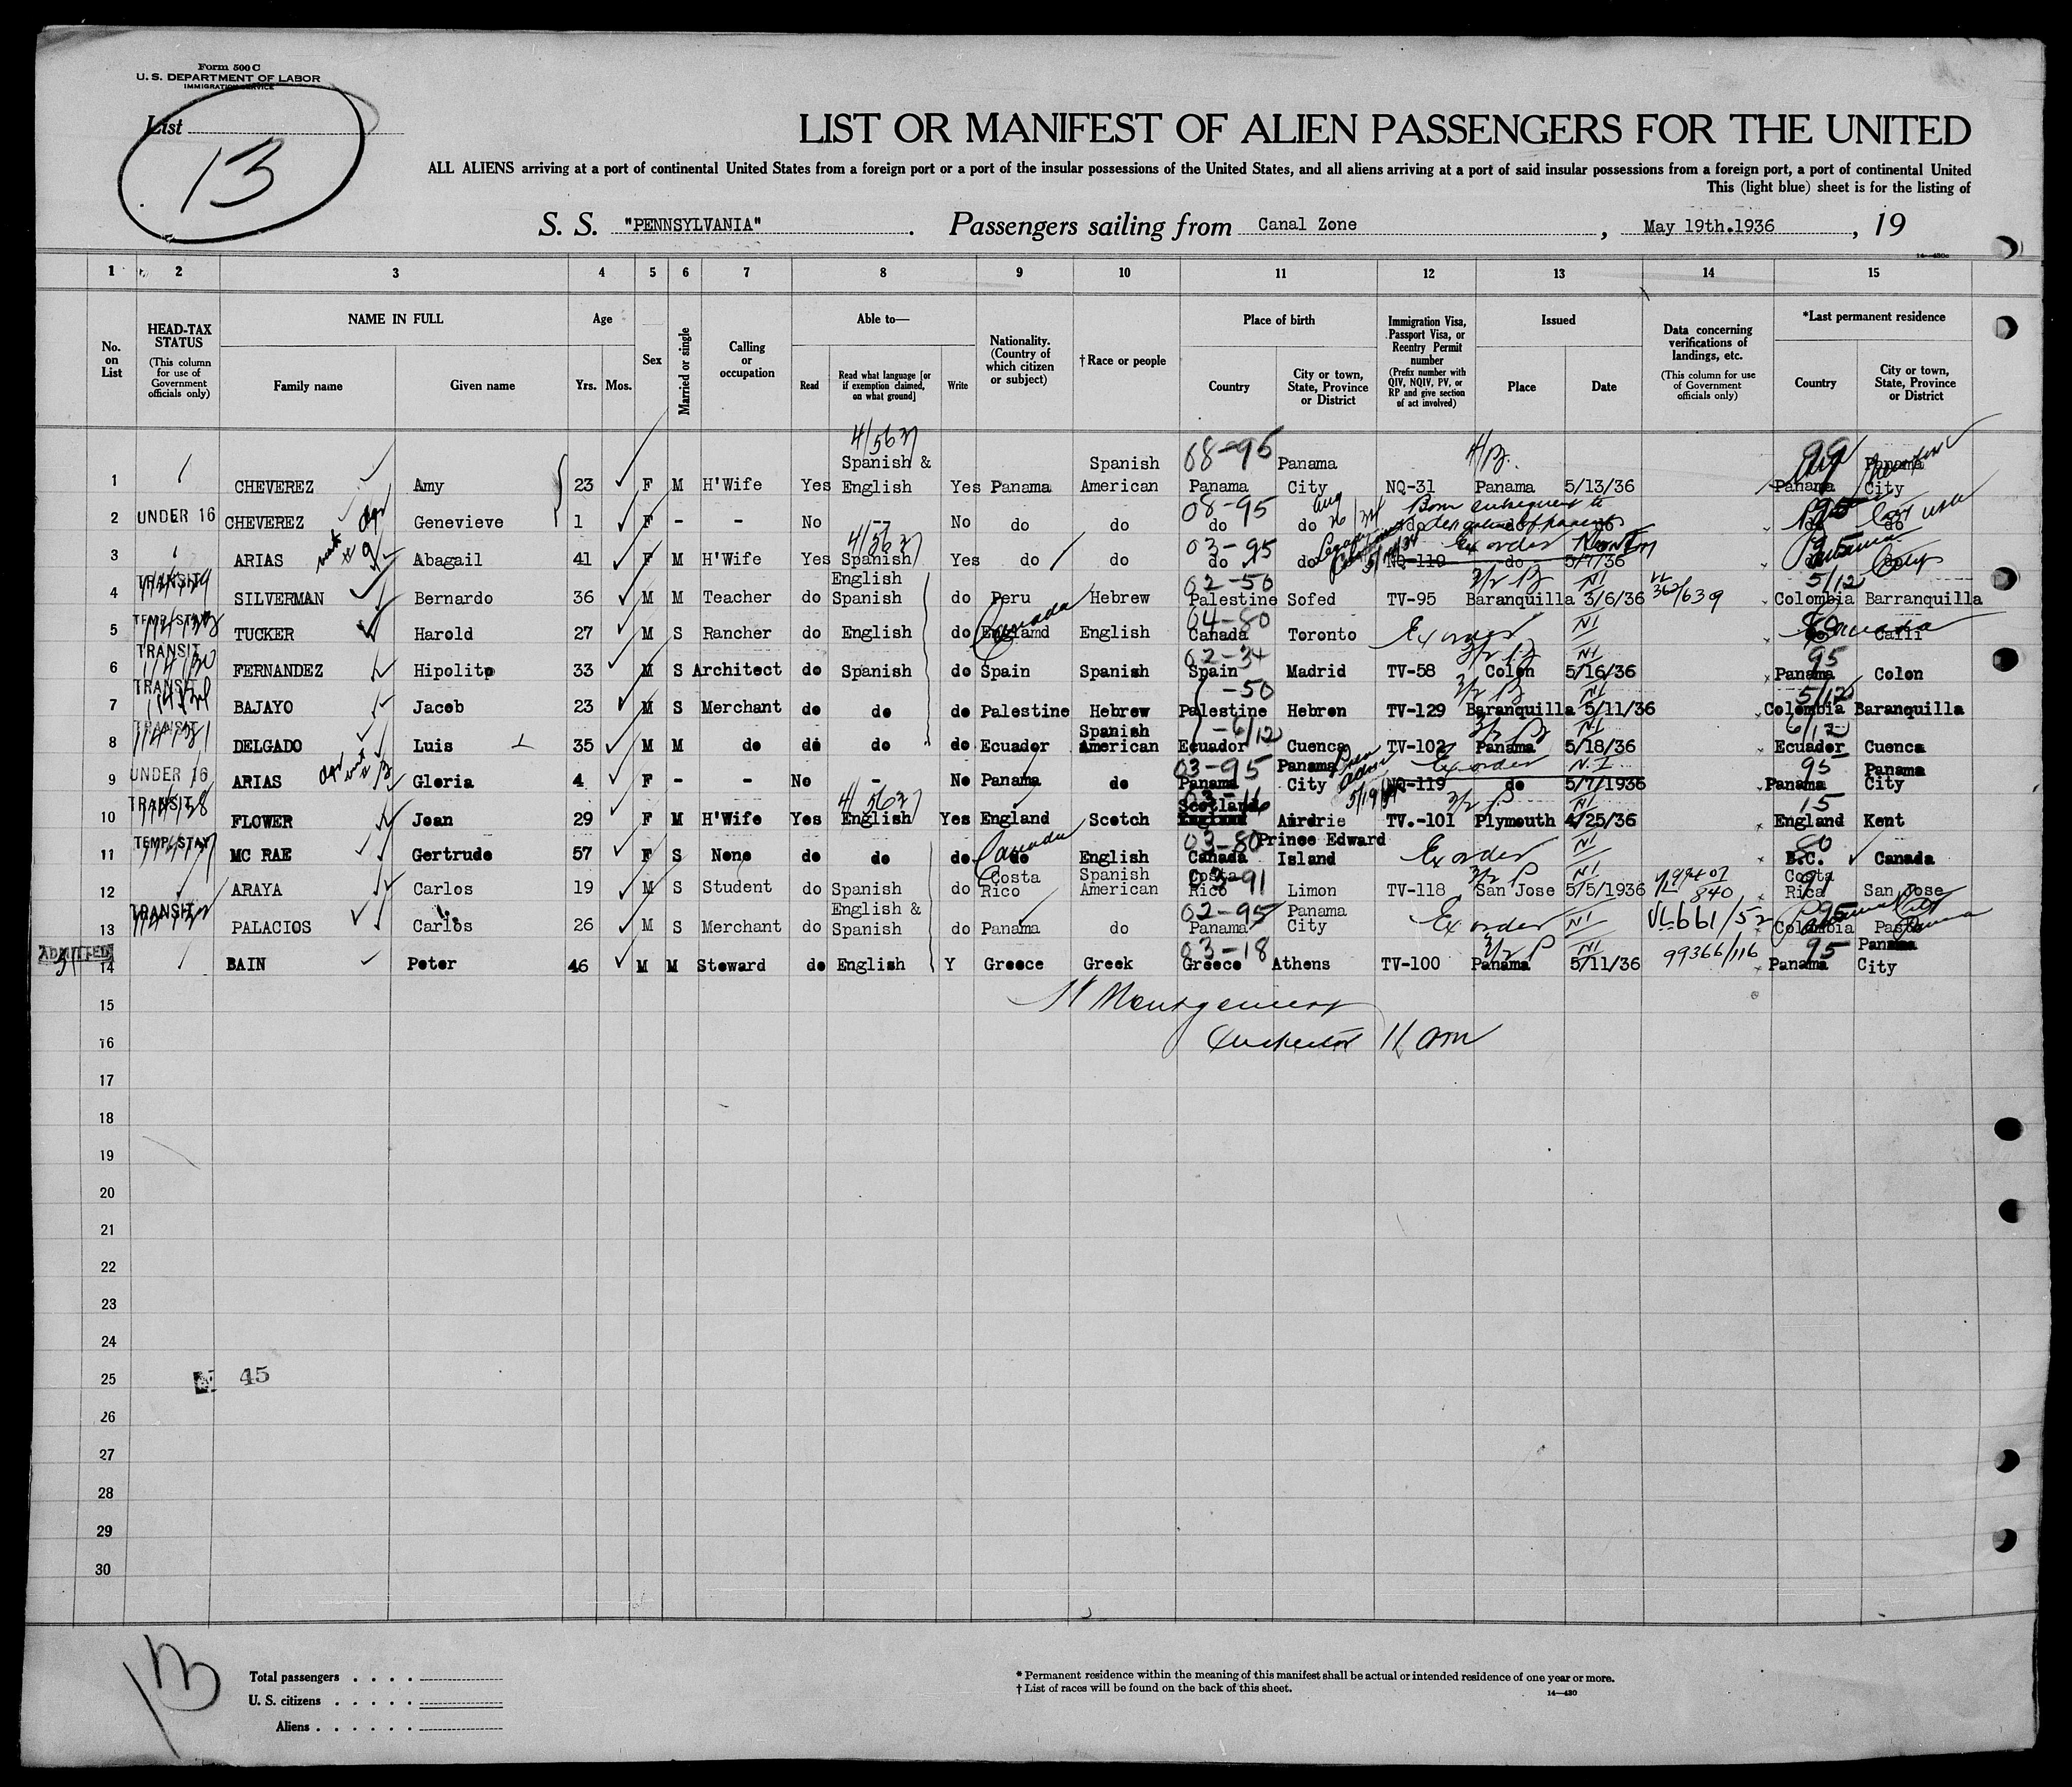 Form 500 C
U. S. DEPARTMENT OF LABOR
IMMIGRATION SERVICE
List
13
LIST OR MANIFEST OF ALIEN PASSENGERS FOR THE UNITED
ALL ALIENS arriving at a port of continental United States from a foreign port or a port of the insular possessions of the United States, and all aliens arriving at a port of said insular possessions from a foreign port, a port of continental United
This (light blue) sheet is for the listing of
S. S. "PENNSYLVANIA". Passengers sailing from Canal Zone, May 19th.1936, 19
14—430c
1 2 3 4 5 6 7 8 9 10 11 12 13 14 15
No. on List
HEAD-TAX STATUS (This column for use of Government officials only)
NAME IN FULL Family name Given name
Age Yrs. Mos.
Sex
Married or single
Calling or occupation
Able to— Read Read what language [or if exemption claimed, on what ground] Write
Nationality. (Country of which citizen or subject)
†Race or people
Place of birth Country City or town, State, Province or District
Immigration Visa, Passport Visa, or Reentry Permit number (Prefix number with QIV, NQIV, PV, or RP and give section of act involved)
Issued Place Date
Data concerning verifications of landings, etc. (This column for use of Government officials only)
*Last permanent residence Country City or town, State, Province or District
1 CHEVEREZ Amy 23 F M H'Wife Yes Spanish & English Yes Panama Spanish American 08-95 Panama Panama City NQ-31 Panama 5/13/36 99 Panama Panama City
2 UNDER 16 CHEVEREZ Genevieve 1 F - - No -- No do do 08-95 do do Aug 26/34 do Born subsequent to do do 95 do do
3 ARIAS Abagail 41 F M H'Wife Yes Spanish Yes do do 03-95 do do NQ-119 Ex order do 5/7/36 95 do
4 TRANSIT SILVERMAN Bernardo 36 M M Teacher do English Spanish do Peru Hebrew 02-50 Palestine Sofed TV-95 3/2 Baranquilla NI 3/6/36 5/12 Colombia Barranquilla
5 TEMP. STAY TUCKER Harold 27 M S Rancher do English do England Canada English 04-80 Canada Toronto Ex order NI 80 do Calli Canada
6 TRANSIT FERNANDEZ Hipolito 33 M S Architect do Spanish do Spain Spanish 02-34 Spain Madrid TV-58 3/2 Colon NI 5/16/36 95 Panama Colon
7 TRANSIT BAJAYO Jacob 23 M S Merchant do do do Palestine Hebrew -50 Palestine Hebron TV-129 3/2 Baranquilla NI 5/11/36 5/12 Colombia Baranquilla
8 TRANSIT DELGADO Luis 35 M M do do do do Ecuador Spanish American -6/12 Ecuador Cuenca TV-102 3/2 Panama NI 5/18/36 6/12 Ecuador Cuenca
9 UNDER 16 ARIAS Gloria 4 F - - No - No Panama do 03-95 Panama Panama City NQ-119 Ex order do NI 5/7/1936 95 Panama Panama City
10 TRANSIT FLOWER Jean 29 F M H'Wife Yes English Yes England Scotch Scotland Airdrie TV.-101 3/2 Plymouth NI 4/25/36 15 England Kent
11 TEMP. STAY MC RAE Gertrude 57 F S None do do do do Canada English 03-80 Canada Prince Edward Island Ex order NI 80 B.C. Canada
12 ARAYA Carlos 19 M S Student do Spanish do Costa Rico Spanish American 03-91 Costa Rico Limon TV-118 3/2 San Jose NI 5/5/1936 91 Costa Rica San Jose
13 TRANSIT PALACIOS Carlos 26 M S Merchant do English & Spanish do Panama do 02-95 Panama Panama City Ex order NI 95 Colombia Pasto
ADMITTED
14 BAIN Peter 46 M M Steward do English Y Greece Greek 03-18 Greece Athens TV-100 3/2 Panama NI 5/11/36 99366/116 95 Panama Panama City
15 Montgomery
16 Inspector 11 am
17
18
19
20
21
22
23
24
25 45
26
27
28
29
30
13
Total passengers
U. S. citizens
Aliens
* Permanent residence within the meaning of this manifest shall be actual or intended residence of one year or more.
† List of races will be found on the back of this sheet.
14—430